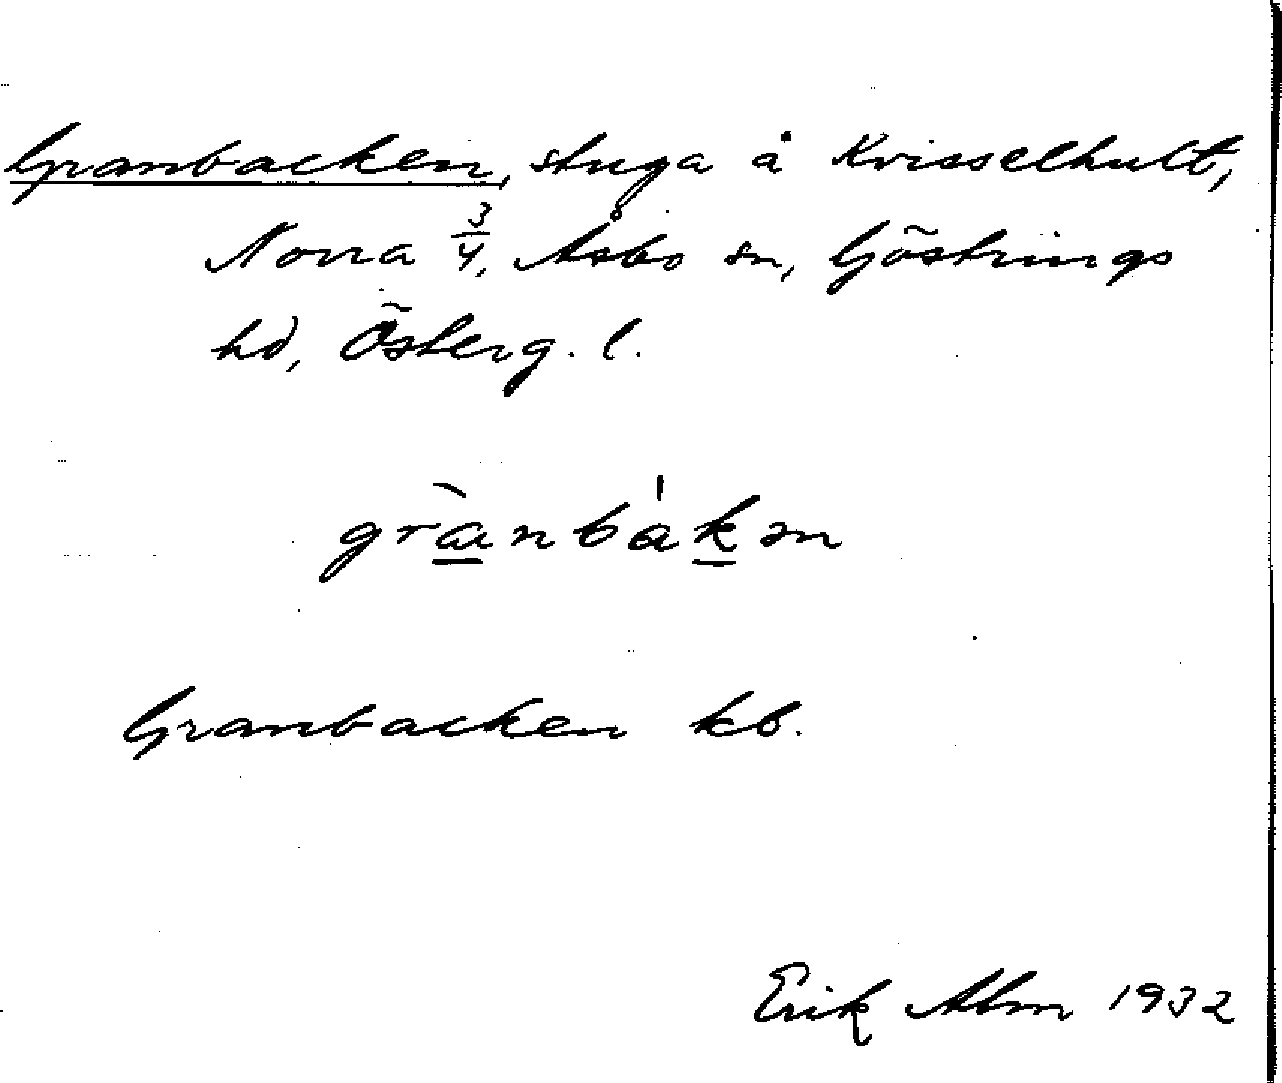 Granbacken, stuga å Kvisselhult,
Norra 3/4, Åsbo sn, Göstrings
hd, Österg. l.
grànbákən
Granbacken kb.
Erik Abm 1932